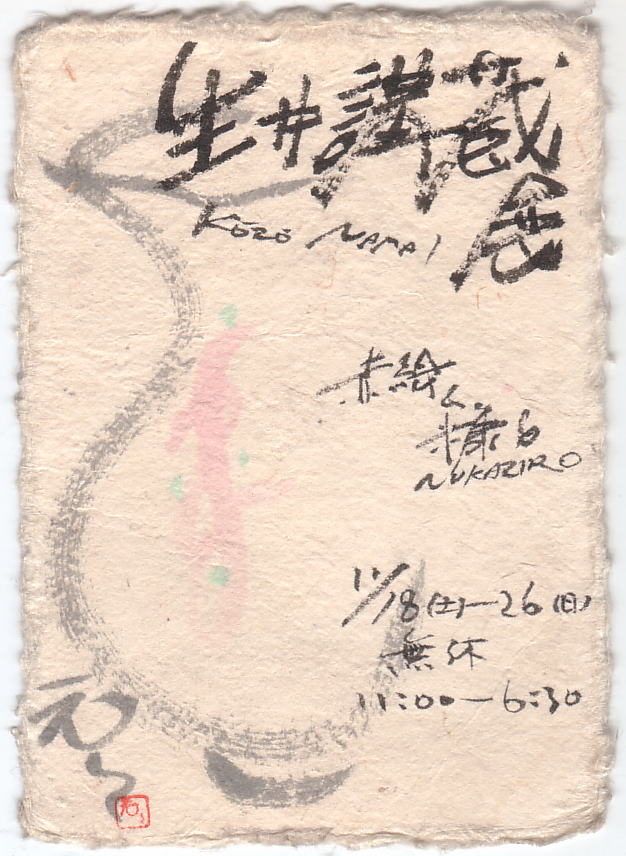 生井講蔵
Kōzō NAMAI
赤絵と
糠白
NUKAZIRO
11/18(土)—26(日)
無休
11:00—6:30